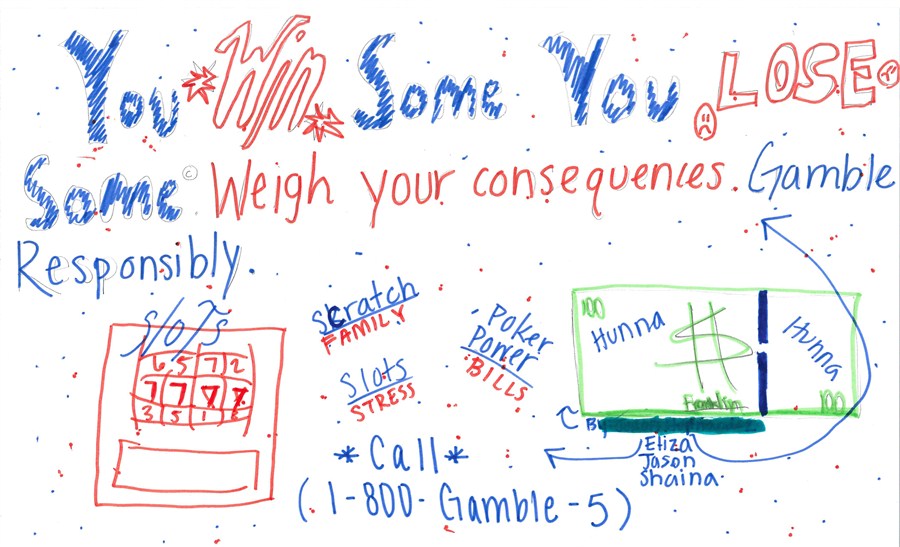 You Win Some You LOSE
Some © Weigh your consequences. Gamble
Responsibly.
slots
6 5 7 2
7 7 7 7
3 5 1
scratch
FAMILY
Slots
STRESS
- Poker
Power
BILLS
100
Hunna
$
Hunna
100
By
Eliza
Jason
Shaina
*Call*
(1-800-Gamble-5)